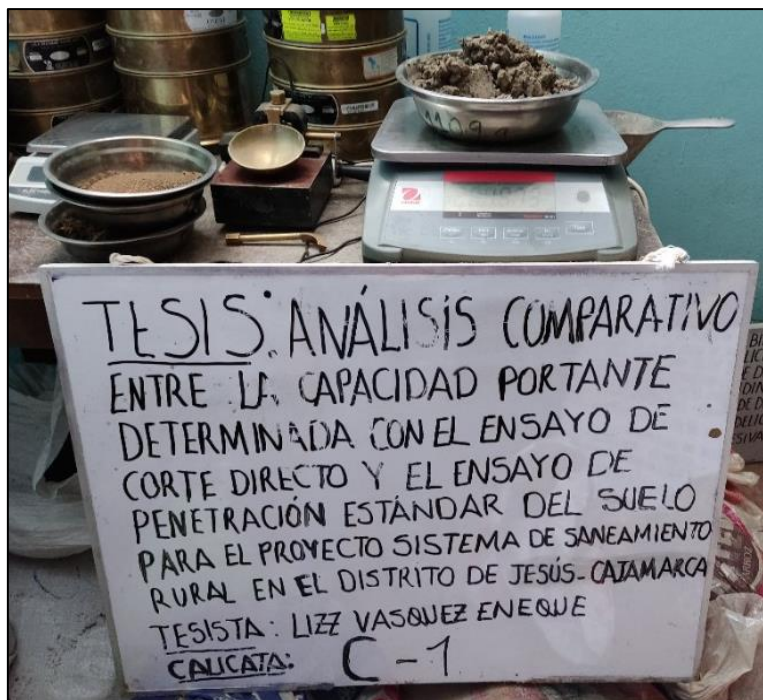 1109g
TESIS: ANÁLISIS COMPARATIVO
ENTRE LA CAPACIDAD PORTANTE
DETERMINADA CON EL ENSAYO DE
CORTE DIRECTO Y EL ENSAYO DE
PENETRACIÓN ESTÁNDAR DEL SUELO
PARA EL PROYECTO SISTEMA DE SANEAMIENTO
RURAL EN EL DISTRITO DE JESÚS-CAJAMARCA
TESISTA: LIZZ VASQUEZ ENEQUE
CALICATA: C-1